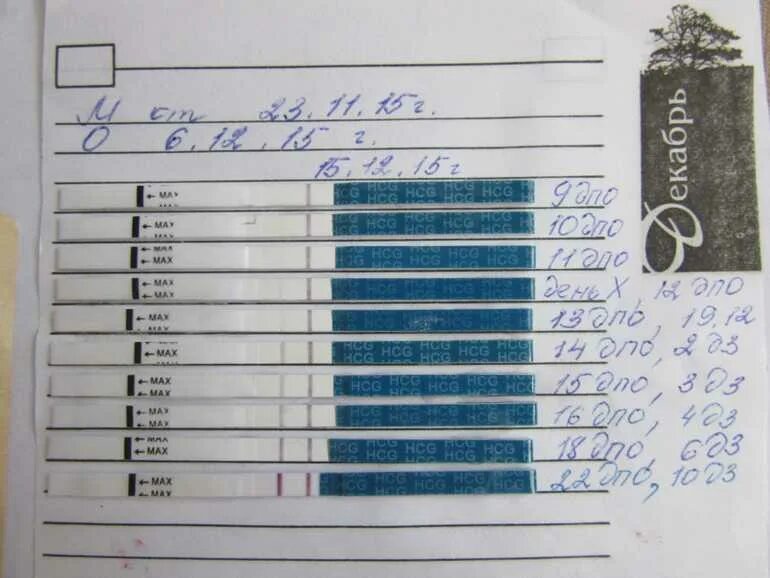 М ст 23.11.15г.
О 6.12.15 г.
15.12.15г
Декабрь
← MAX HCG HCG HCG HCG 9 дпо
← MAX HCG HCG HCG 10 дпо
← MAX HCG HCG HCG 11 дпо
← MAX HCG HCG HCG день X, 12 дпо
← MAX HCG HCG HCG 13 дпо, 19.12
← MAX HCG HCG HCG 14 дпо, 2 дз
← MAX HCG HCG HCG 15 дпо, 3 дз
← MAX HCG HCG HCG 16 дпо, 4 дз
← MAX HCG HCG HCG 18 дпо, 6 дз
← MAX HCG HCG HCG 22 дпо, 10 дз